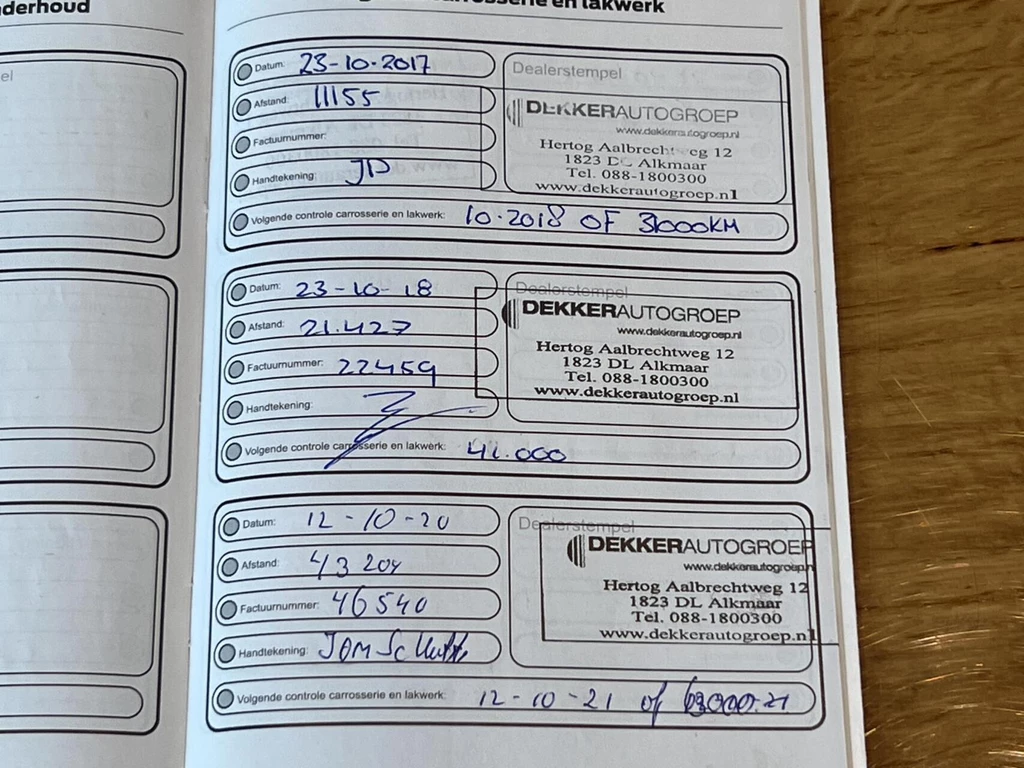 nderhoud
carrosserie en lakwerk
el
Datum: 23-10-2017
Afstand: 11155
Factuurnummer:
Handtekening: JD
Dealerstempel
DEKKERAUTOGROEP
www.dekkerautogroep.nl
Hertog Aalbrechtweg 12
1823 DL Alkmaar
Tel. 088-1800300
www.dekkerautogroep.nl
Volgende controle carrosserie en lakwerk: 10-2018 OF 31000KM
Datum: 23-10-18
Afstand: 21.427
Factuurnummer: 22459
Handtekening:
Dealerstempel
DEKKERAUTOGROEP
www.dekkerautogroep.nl
Hertog Aalbrechtweg 12
1823 DL Alkmaar
Tel. 088-1800300
www.dekkerautogroep.nl
Volgende controle carrosserie en lakwerk: 41.000
Datum: 12-10-20
Afstand: 43204
Factuurnummer: 46540
Handtekening:
Dealerstempel
DEKKERAUTOGROEP
www.dekkerautogroep.n
Hertog Aalbrechtweg 12
1823 DL Alkmaar
Tel. 088-1800300
www.dekkerautogroep.nl
Volgende controle carrosserie en lakwerk: 12-10-21 of